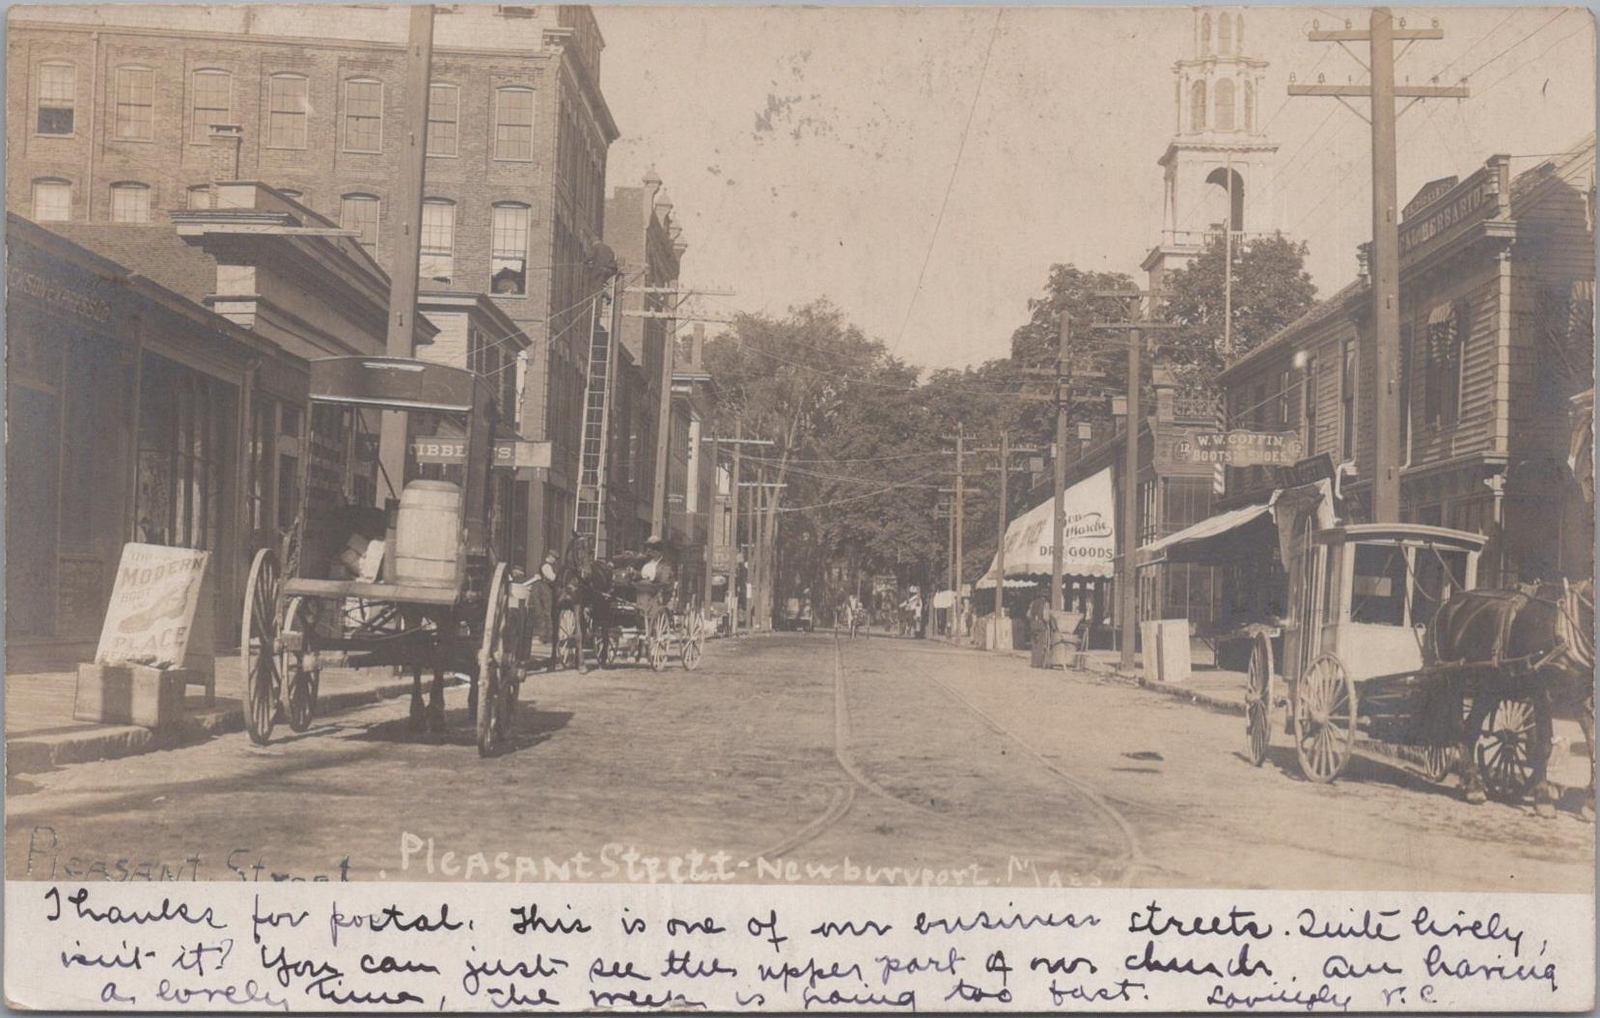 HERBARIUM
W. W. COFFIN
12 BOOTS & SHOES 12
Bon
Marche
DRY GOODS
MODERN
PLACE
PLEASANT Street
PLEASANT Street - Newburyport. Mass
Thanks for postal. This is one of our business streets. Quite lively,
isn't it? You can just see the upper part of our church. Am having
a lovely time, the week is going too fast. Lovingly V. C.